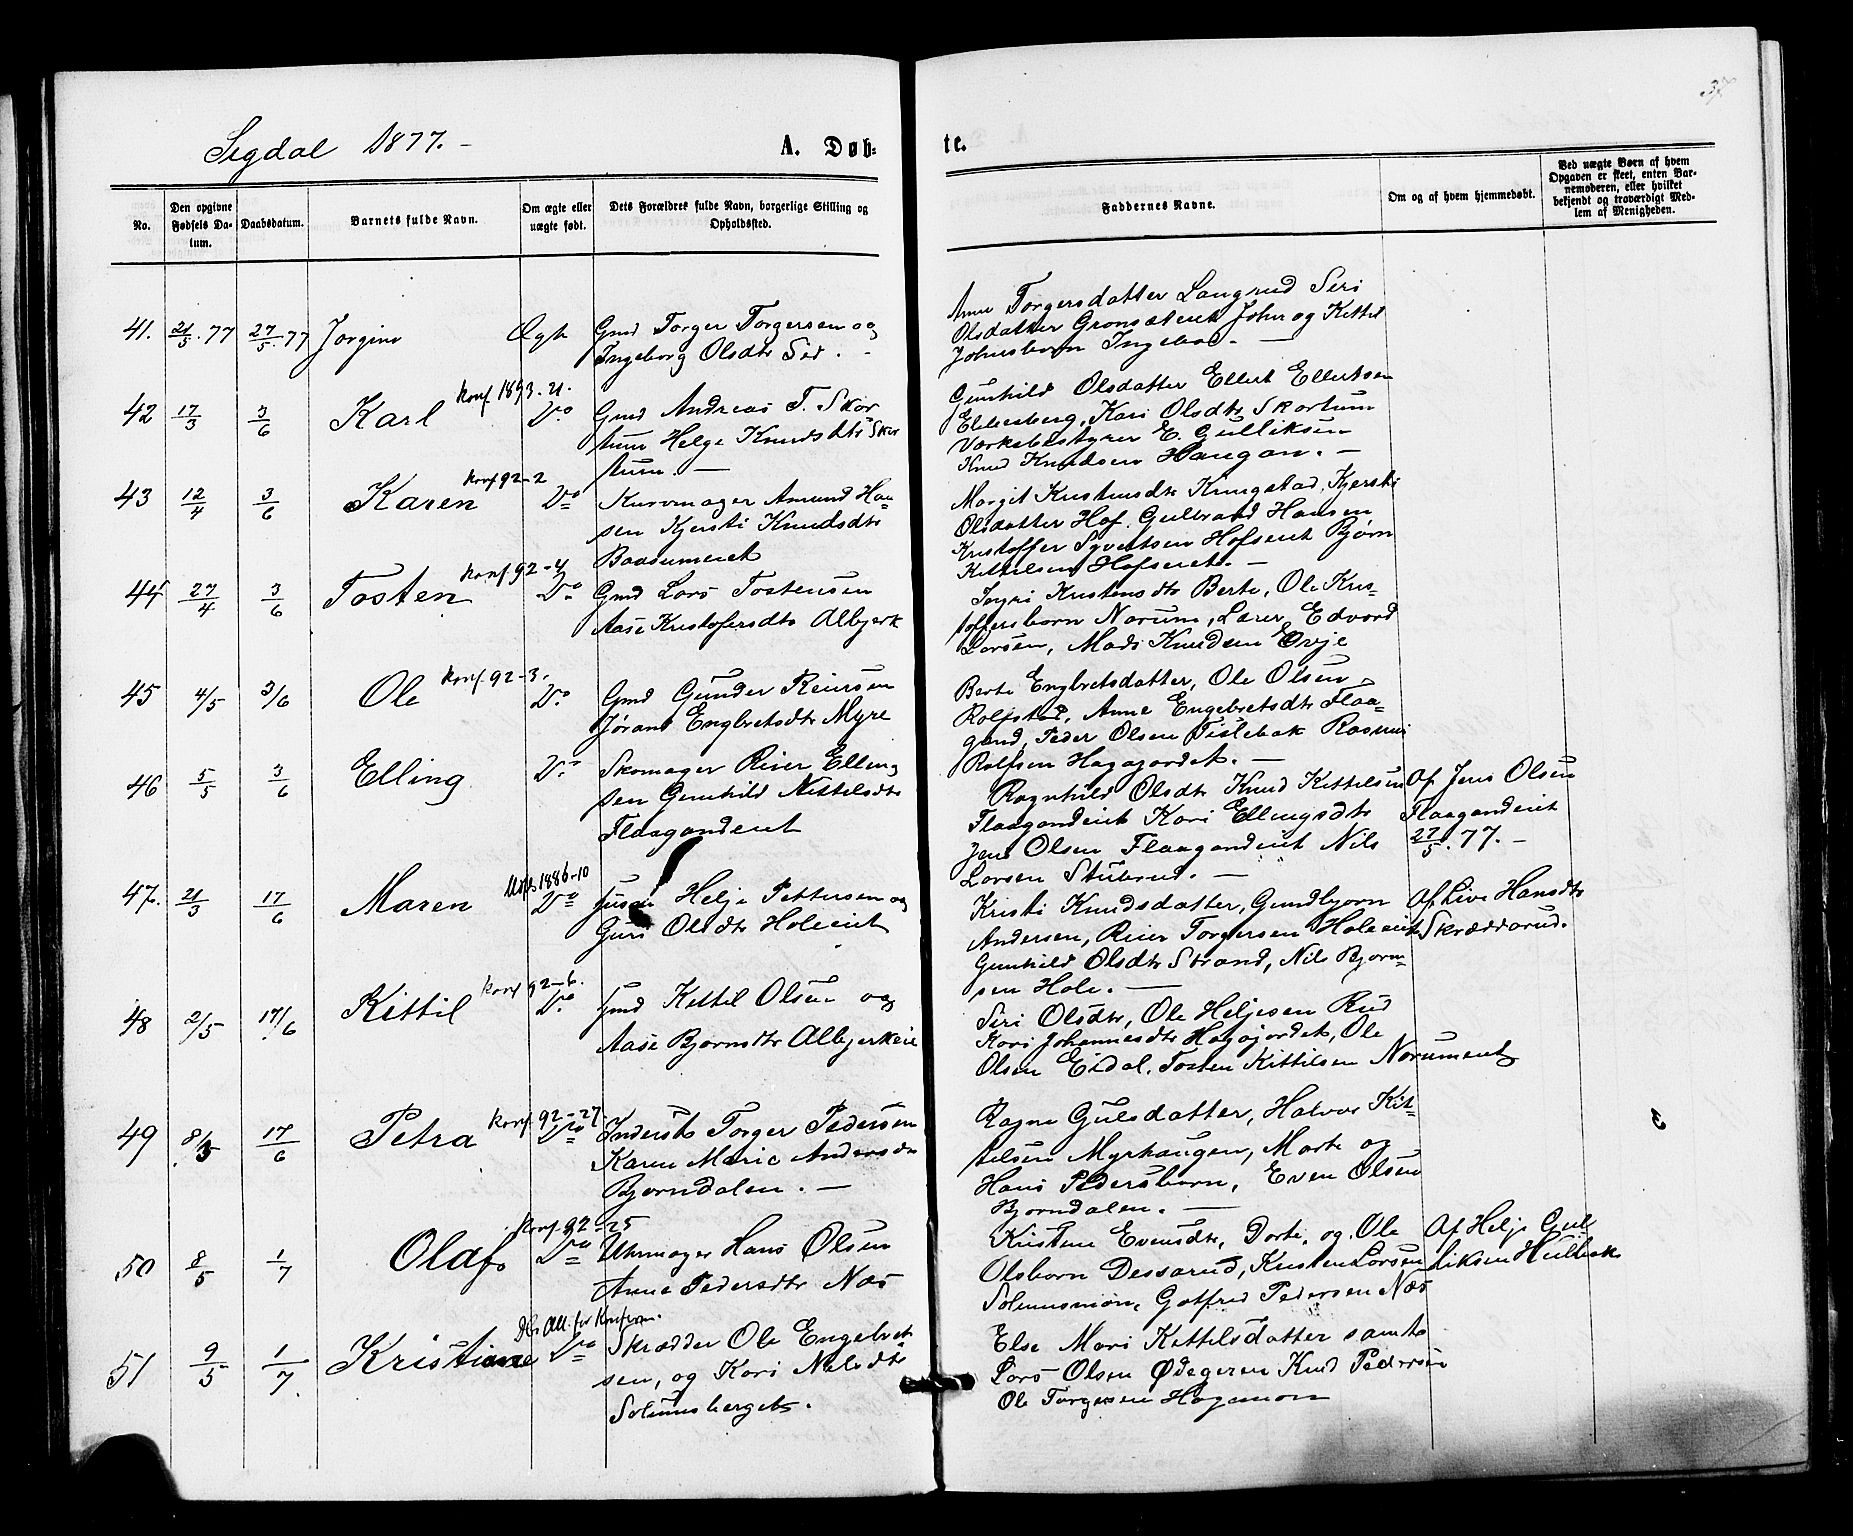 37
Segdal 1877.-
A. Døb-
te.
No.
Den opgivne Fødsels Da-tum.
Daabsdatum.
Barnets fulde Navn.
Om ægte eller uægte født.
Dets Forældres fulde Navn, borgerlige Stilling og Opholdssted.
Faddernes Navne.
Om og af hvem hjemmedøbt.
Ved uægte Børn af hvem Opgaven er skeet, enten Bar-nemoderen, eller hvilket bekjendt og troværdigt Med-lem af Menigheden.
41. 21/5.77 27/5.77 Jorgine Ægte
Gmd Torger Torgersen og
Ingeborg Olsdtr
Anne Torgersdatter Langrud Seri
Olsdatter Gronseteret John og Kittil
Johnsborn
42 17/3 3/6 Karl Konf 1893-21. Do
Gmd Andreas T. Skor
tum Helge Knudsdtr Skor
tum. -
Gunhild Olsdatter Ellert Ellertsen
Kari Olsdtr Skortum
Værksbestyrer E. Gulliksen
Knud Knudsen Haugan. -
43 12/4 3/6 Karen Konf 92-2 Do
Kurvmager Amund Han
sen Kjersti Knudsdtr
Margit Kristensdtr Kringstad, Kjersti
Olsdatter Hof. Gulbrand Hansen
Kristoffer Syvertsen Hofseret Bjørn
Kittilsen Hofseret. -
44 27/4 3/6 Tosten Konf 92-4 Do
Gmd Lars Tostensen
Aase Kristofersdtr Albjerk
Ingri Kristensdtr Berte, Ole Kris-
toffersborn Narum, Lærer Edvard
Larsen, Mads Knudsen Evje
45 4/5 3/6 Ole Konf 92-3. Do
Gmd Gunder Reiersen
Jøran Engbretsdtr Myre
Berte Engbretsdatter, Ole Olsen
Rolfstad, Anne Engebretsdtr Flaa-
gand, Peder Olsen Tislebak Rasmus
Rolfsen Hagajordet. -
46 5/5 3/6 Elling Do
Skomager Reier Elling
sen Gunhild Kittelsdtr
Flaagandeiet
Ragnhild Olsdtr Knud Kittelsen
Flaagandeiet Kari Ellingsdtr
Jens Olsen Flaagandeiet Nils
Larsen Stuberud. -
Af Jens Olsen
Flaagandeiet
27/5.77.-
47. 21/3 17/6 Maren 1886-10 Do
Helje Pettersen og
Guri Olsdtr Holeeiet
Kristi Knudsdatter, Gundbjorn
Andersen, Reier Torgersen Holeeiet
Gunhild Olsdtr Strand, Nils Bjorn-
sen Hole. -
Af Live Hansdtr
Skræddarud.
48 2/5 17/6 Kittil Konf 92-6. Do
Gmd Kittil Olsen og
Aase Bjornsdtr Albjerkeie
Siri Olsdtr, Ole Heljesen Rud
Kari Johannesdtr Hagajordet, Ole
Olsen Eidal, Tosten Kittilsen Narumeiet
49 8/3 17/6 Petra Konf. 92-27. Do
Inderst Torger Pedersen
Karen Marie Andersdtr
Bjorndalen. -
Ragne Gulsdatter, Halvor Kit-
tilsen Myrhaugen, Marte og
Hans Pedersborn, Even Olsen
Bjorndalen. -
50 8/5 1/7 Olaf Konf. 92-25 Do
Uhrmager Hans Olsen
Anne Pedersdtr Næs
Kristine Evensdtr, Dorte, og Ole
Olsborn Dessarud, Kristen Larsen
Solumsmon, Gotfred Pedersen Næs
Af Helje Gul
liksen Hulbak
51 9/5 1/7 Kristiane Att. for Konfirm. Do
Skrædder Ole Engebret
sen, og Kari Nilsdtr
Solumsberget.
Else Mari Kittilsdatter samt
Lars Olsen Ødegaren Knud Pedersen
Ole Torgersen Hagamon